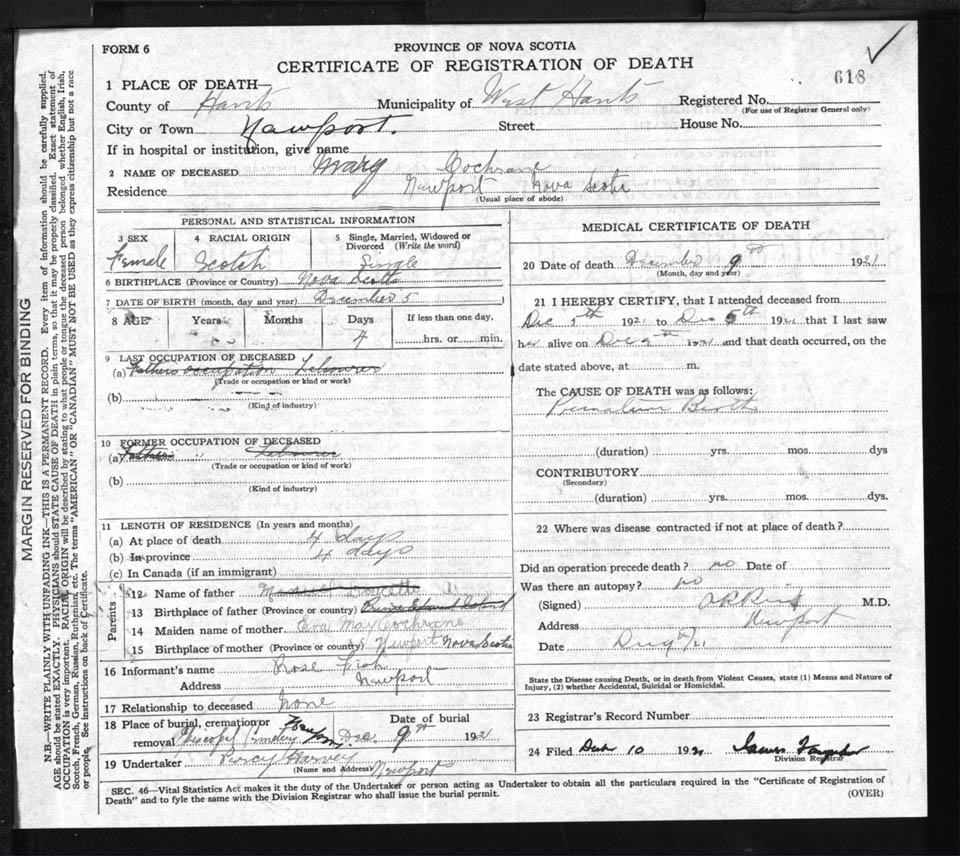 FORM 6
PROVINCE OF NOVA SCOTIA
CERTIFICATE OF REGISTRATION OF DEATH
618
1 PLACE OF DEATH—
County of Hants Municipality of West Hants Registered No.
(For use of Registrar General only)
City or Town Newport. Street House No.
If in hospital or institution, give name
2 NAME OF DECEASED Mary Cochrane
Residence Newport Nova Scotia
(Usual place of abode)
PERSONAL AND STATISTICAL INFORMATION
3 SEX Female
4 RACIAL ORIGIN Scotch
5 Single, Married, Widowed or Divorced (Write the word) Single
6 BIRTHPLACE (Province or Country) Nova Scotia
7 DATE OF BIRTH (month, day and year) December 5
8 AGE Years Months Days If less than one day,
4 hrs. or min.
9 LAST OCCUPATION OF DECEASED
(a) Fathers occupation Labourer
(Trade or occupation or kind or work)
(b)
(Kind of industry)
10 FORMER OCCUPATION OF DECEASED
(a) Fathers " Labourer
(Trade or occupation or kind of work)
(b)
(Kind of industry)
11 LENGTH OF RESIDENCE (In years and months)
(a) At place of death 4 days
(b) In province 4 days
(c) In Canada (if an immigrant)
Parents
12 Name of father
13 Birthplace of father (Province or country) Prince Edward Island
14 Maiden name of mother Eva May Cochrane
15 Birthplace of mother (Province or country) Newport Nova Scotia
16 Informant's name Rose Fish
Address Newport
17 Relationship to deceased None
18 Place of burial, cremation or removal Cemetery Date of burial Dec. 9th 1921
19 Undertaker Percy Harvey Newport
(Name and Address)
MEDICAL CERTIFICATE OF DEATH
20 Date of death December 9th 1921
(Month, day and year)
21 I HEREBY CERTIFY, that I attended deceased from
Dec 5th 1921 to Dec 1921 that I last saw
her alive on Dec 1921 and that death occurred, on the
date stated above, at m.
The CAUSE OF DEATH was as follows:
Premature Birth
(duration) yrs. mos. dys
CONTRIBUTORY
(Secondary)
(duration) yrs. mos. dys.
22 Where was disease contracted if not at place of death?
Did an operation precede death? no Date of
Was there an autopsy? no
(Signed) M.D.
Address Newport
Date Dec 9th/21
State the Disease causing Death, or in death from Violent Causes, state (1) Means and Nature of
Injury, (2) whether Accidental, Suicidal or Homicidal.
23 Registrar's Record Number
24 Filed Dec 10 1921 James
Division Registrar
SEC. 46—Vital Statistics Act makes it the duty of the Undertaker or person acting as Undertaker to obtain all the particulars required in the "Certificate of Registration of
Death" and to fyle the same with the Division Registrar who shall issue the burial permit.
(OVER)
MARGIN RESERVED FOR BINDING
N.B.—WRITE PLAINLY WITH UNFADING INK—THIS IS A PERMANENT RECORD. Every item of information should be carefully supplied.
AGE should be stated EXACTLY. PHYSICIANS should STATE CAUSE OF DEATH in plain terms, so that it may be properly classified. Exact statement of
OCCUPATION is very important. RACIAL ORIGIN will be described by stating to what people or tongue the deceased person belonged whether English, Irish,
Scotch, French, German, Russian, Ruthenian, etc. The terms "AMERICAN" or "CANADIAN" MUST NOT BE USED as they express citizenship but not a race
or people. See instructions on back of Certificate.